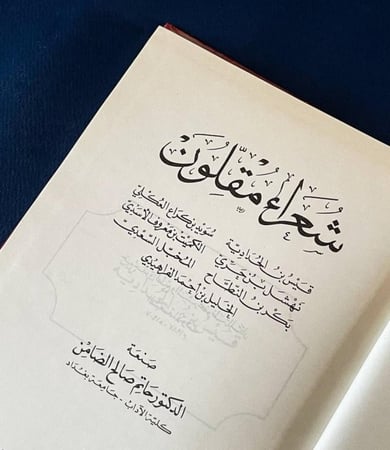 شُعَراءٌ مُقِلّون
قيس بن الحدادية سويد بن كراع العكلي
نهشل بن حري الكميت بن معروف الأسدي
بكر بن النطاح المخبّل السعدي
الخليل بن أحمد الفراهيدي
صنعة
الدكتور حاتم صالح الضامن
كلية الآداب - جامعة بغداد